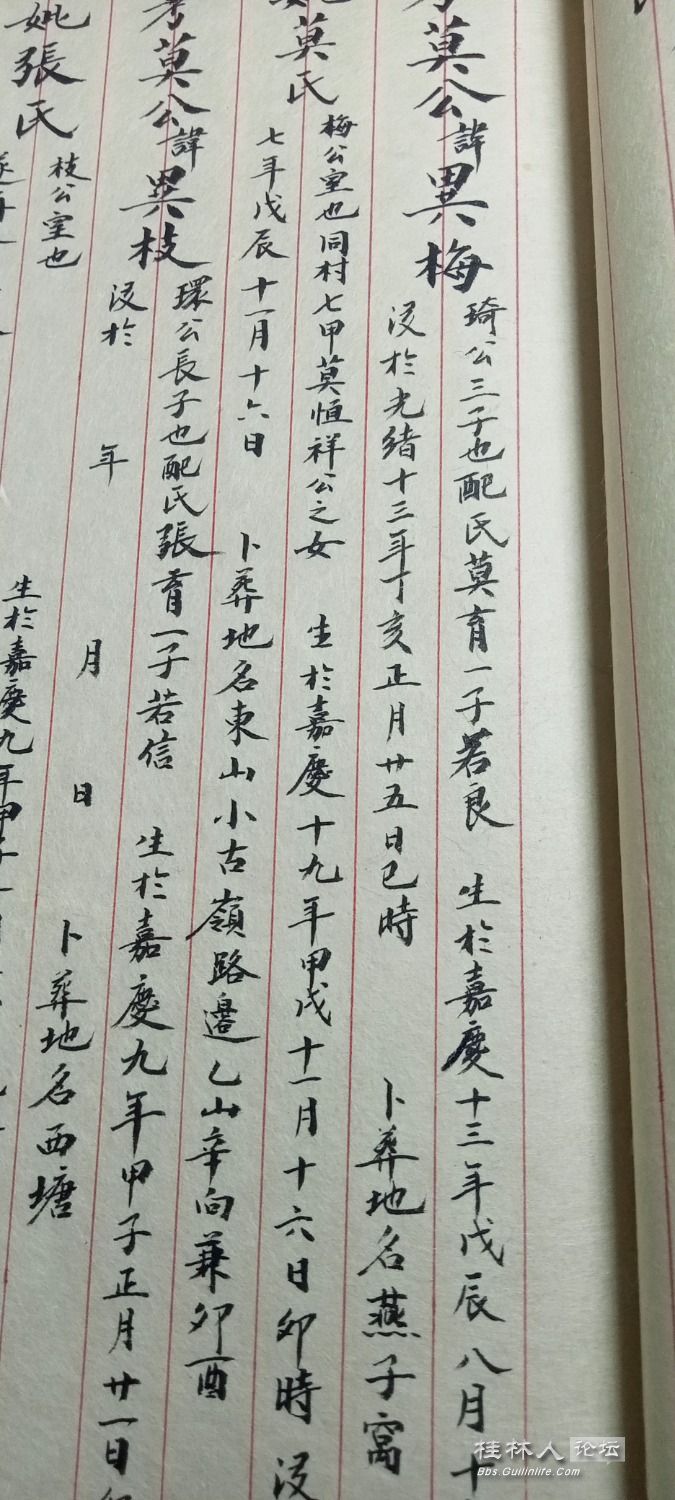 莫公諱異梅
琦公三子也配氏莫育一子若良 生於嘉慶十三年戊辰八月十
没於光緒十三年丁亥正月廿五日巳時 卜葬地名燕子窩
妣莫氏
梅公室也同村七甲莫恒祥公之女 生於嘉慶十九年甲戌十一月十六日卯時 没
七年戊辰十一月十六日 卜葬地名東山小古嶺路邊乙山辛向兼卯酉
考莫公諱異枝
環公長子也配氏張育一子若信 生於嘉慶九年甲子正月廿一日
没於 年 月 日 卜葬地名西塘
妣張氏
枝公室也
生於嘉慶九年甲子
桂林人论坛
Bbs.Guilinlife.Com